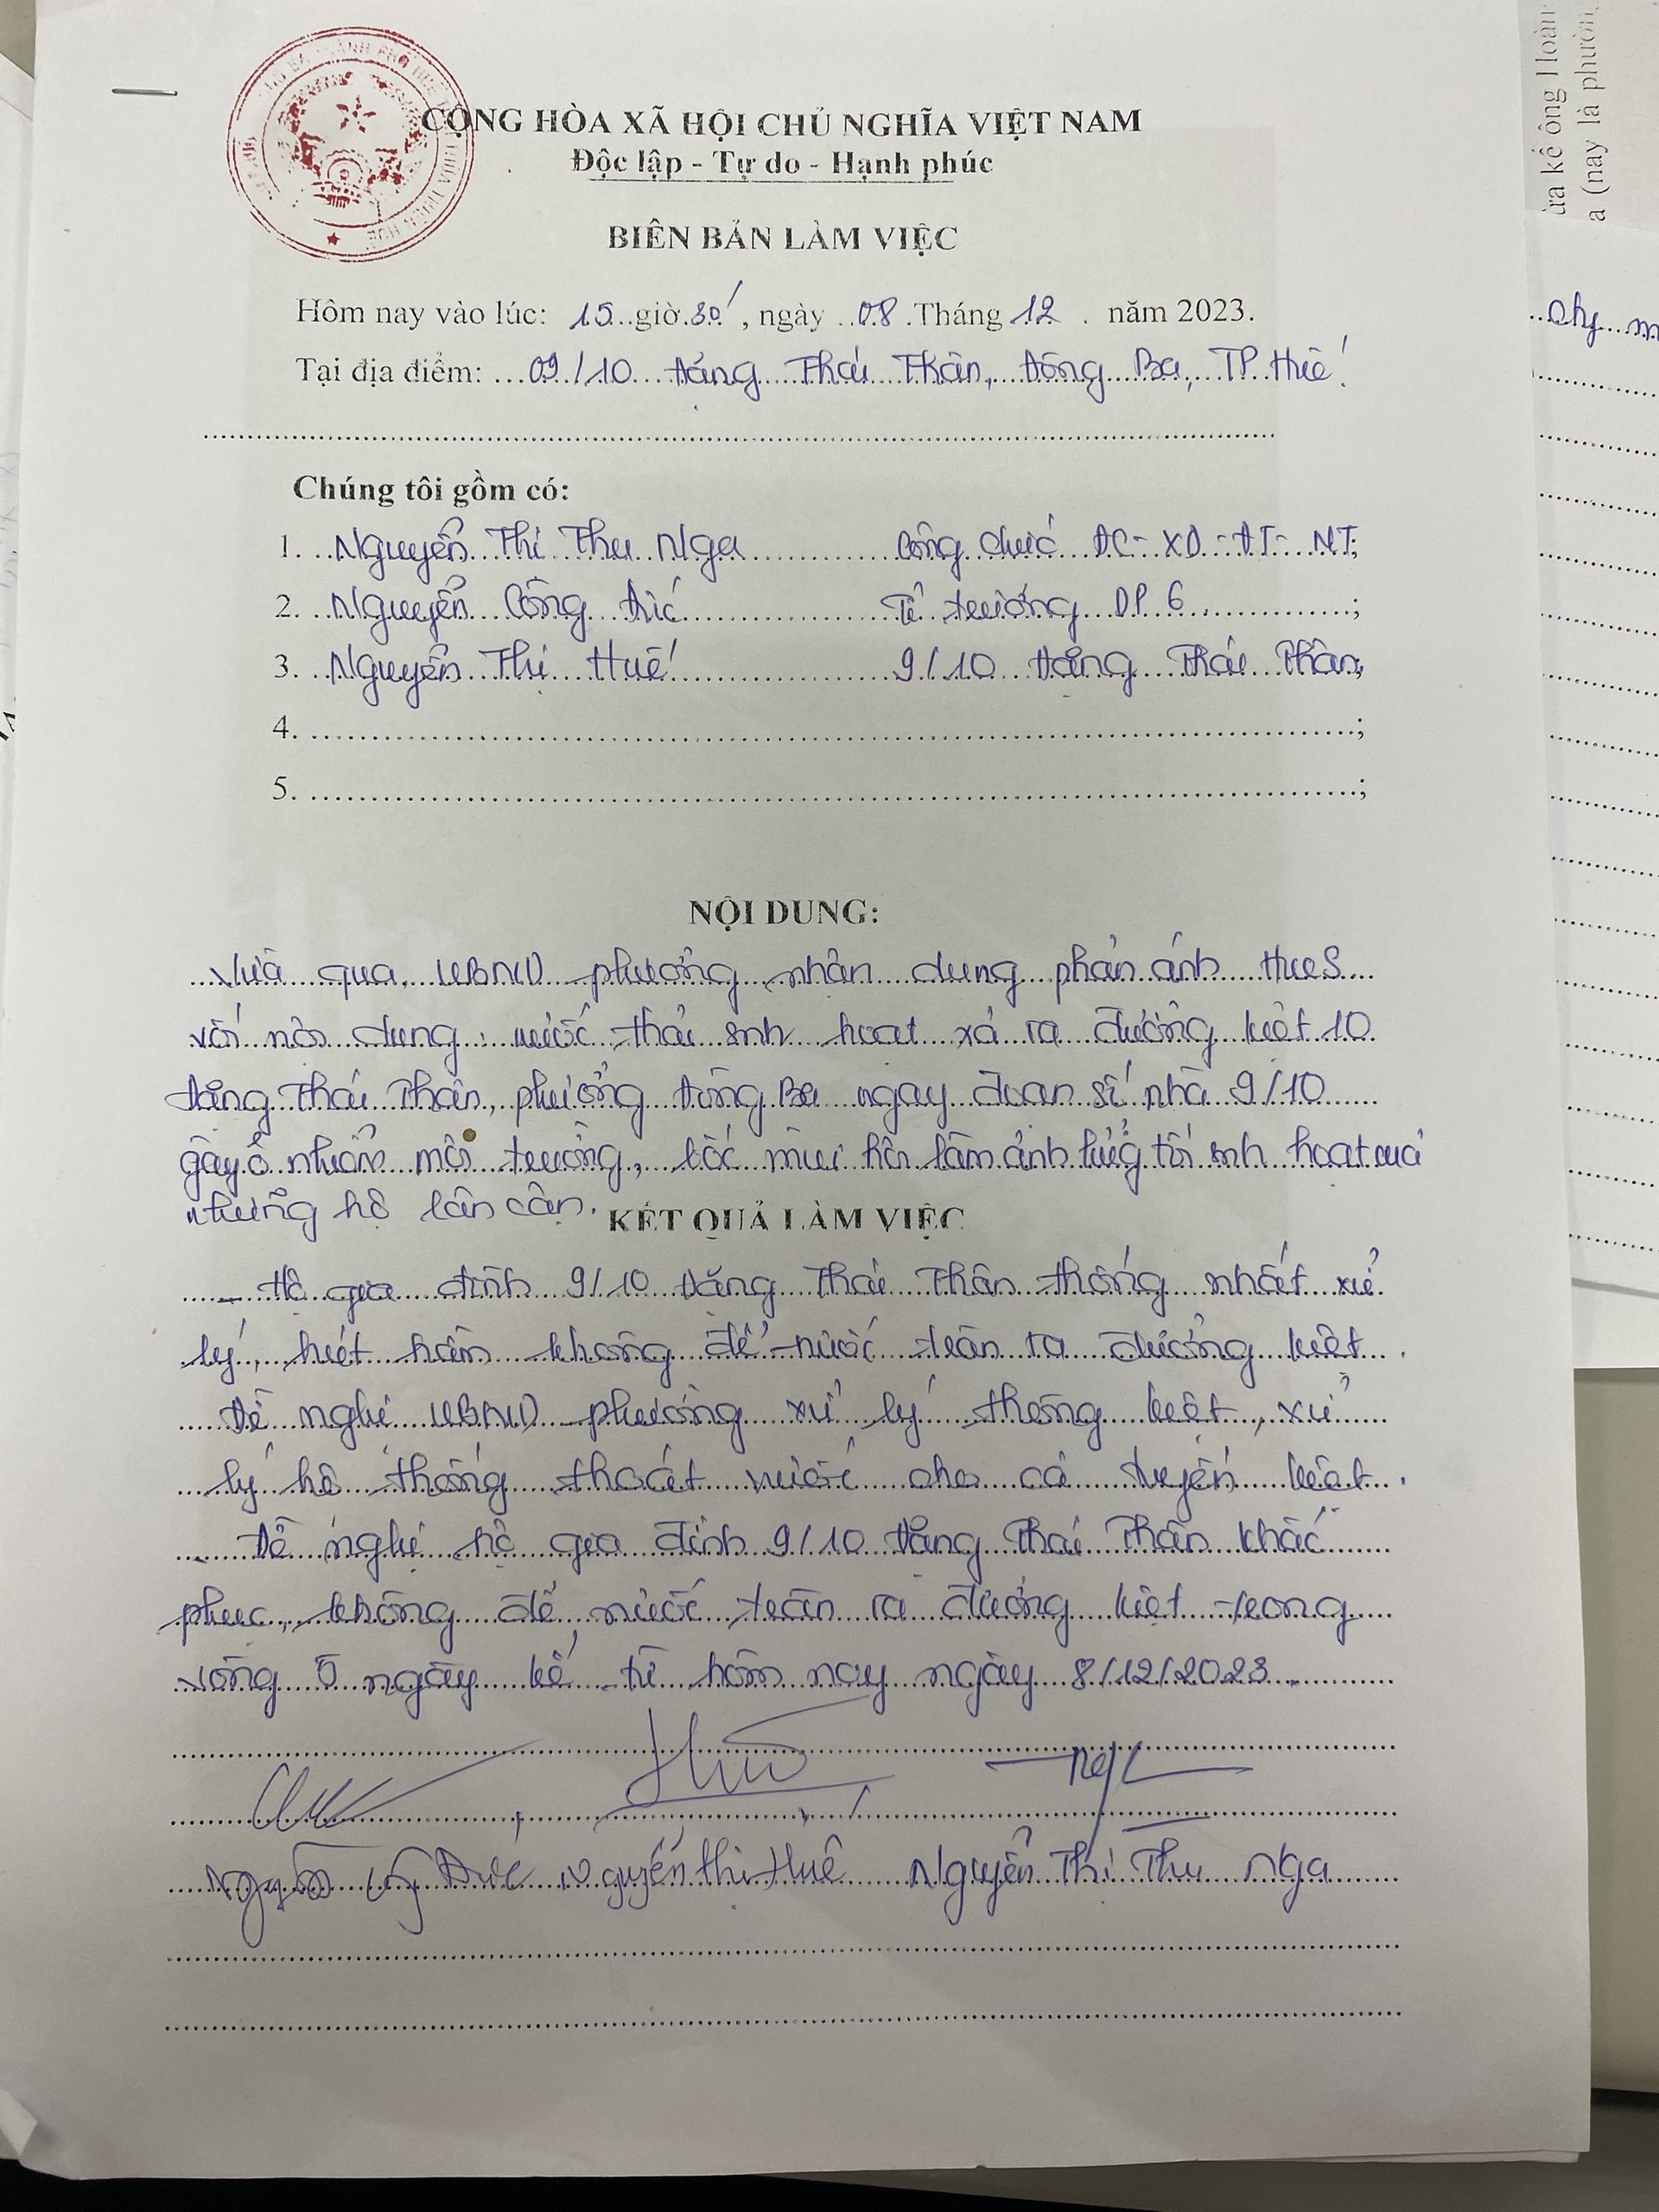 CỘNG HÒA XÃ HỘI CHỦ NGHĨA VIỆT NAM
Độc lập - Tự do - Hạnh phúc
BIÊN BẢN LÀM VIỆC
Hôm nay vào lúc: 15 giờ 30', ngày 08 Tháng 12 năm 2023.
Tại địa điểm: 09/10 Đặng Thái Thân, Đông Ba, TP Huế.
Chúng tôi gồm có:
1. Nguyễn Thị Thu Nga Công chức ĐC-XD-ĐT-MT;
2. Nguyễn Công Đức Tổ trưởng DP 6 ;
3. Nguyễn Thị Huế 9/10 Đặng Thái Thân;
4. ;
5. ;
NỘI DUNG:
Vừa qua, UBND phường nhận dung phản ánh HueS
với nội dung: nước thải sinh hoạt xả ra đường kiệt 10
Đặng Thái Thân, phường Đông Ba ngay đoạn số nhà 9/10
gây ô nhiễm môi trường, bốc mùi hôi làm ảnh hưởng tới sinh hoạt của
những hộ lân cận.
KẾT QUẢ LÀM VIỆC
- Hộ gia đình 9/10 Đặng Thái Thân thống nhất xử
lý, hút hầm không để nước tràn ra đường kiệt.
Đề nghị UBND phường xử lý thông kiệt, xử
lý hệ thống thoát nước cho cả tuyến kiệt.
- Đề nghị hộ gia đình 9/10 Đặng Thái Thân khắc
phục, không để nước tràn ra đường kiệt trong
vòng 5 ngày kể từ hôm nay ngày 8/12/2023.
Nguyễn Công Đức Nguyễn Thị Huế Nguyễn Thị Thu Nga